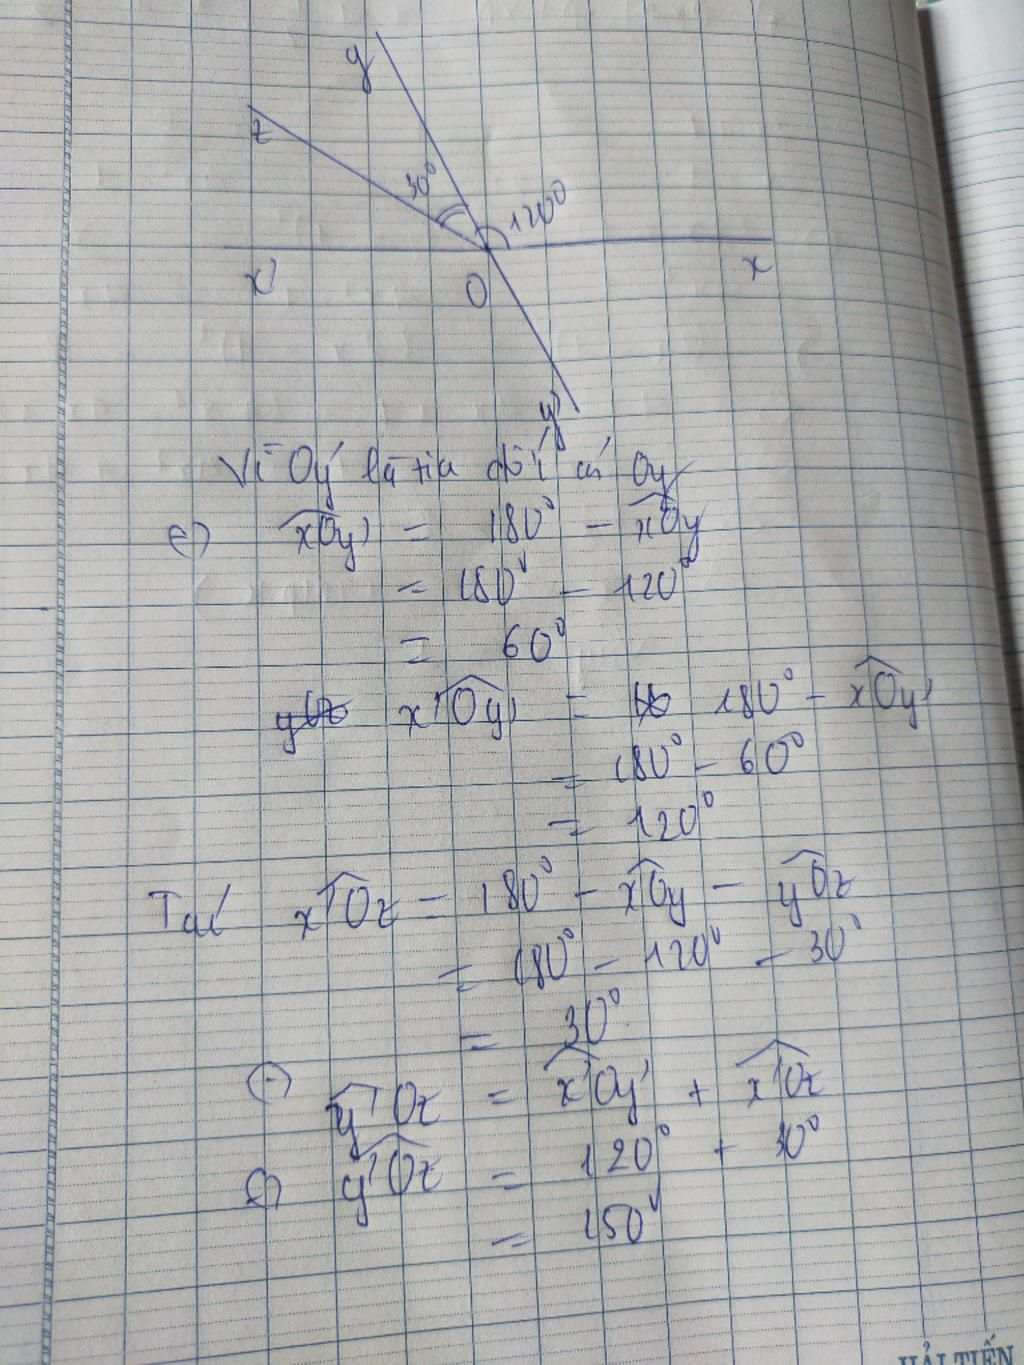 y
z
30°
120°
x'
O
x
y'
Vì Oy' là tia đối củ Oy
=) xOy' = 180° - xOy
= 180° - 120°
= 60°
x'Oy' = 180° - xOy'
= 180° - 60°
= 120°
x'Oz = 180° - xOy - yOz
= 180° - 120° - 30°
= 30°
y'Oz = x'Oy' + x'Oz
=) y'Oz = 120° + 30°
= 150°
HẢI TIẾN